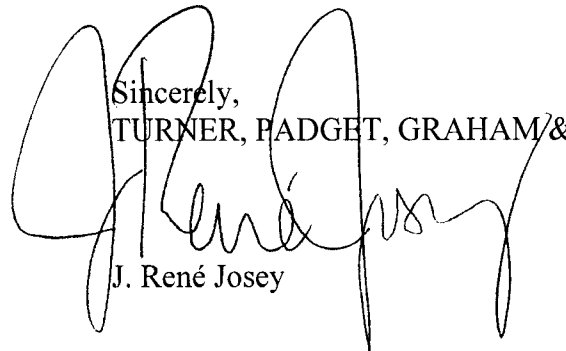 Sincerely,
TURNER, PADGET, GRAHAM &
J René Josey
J. René Josey